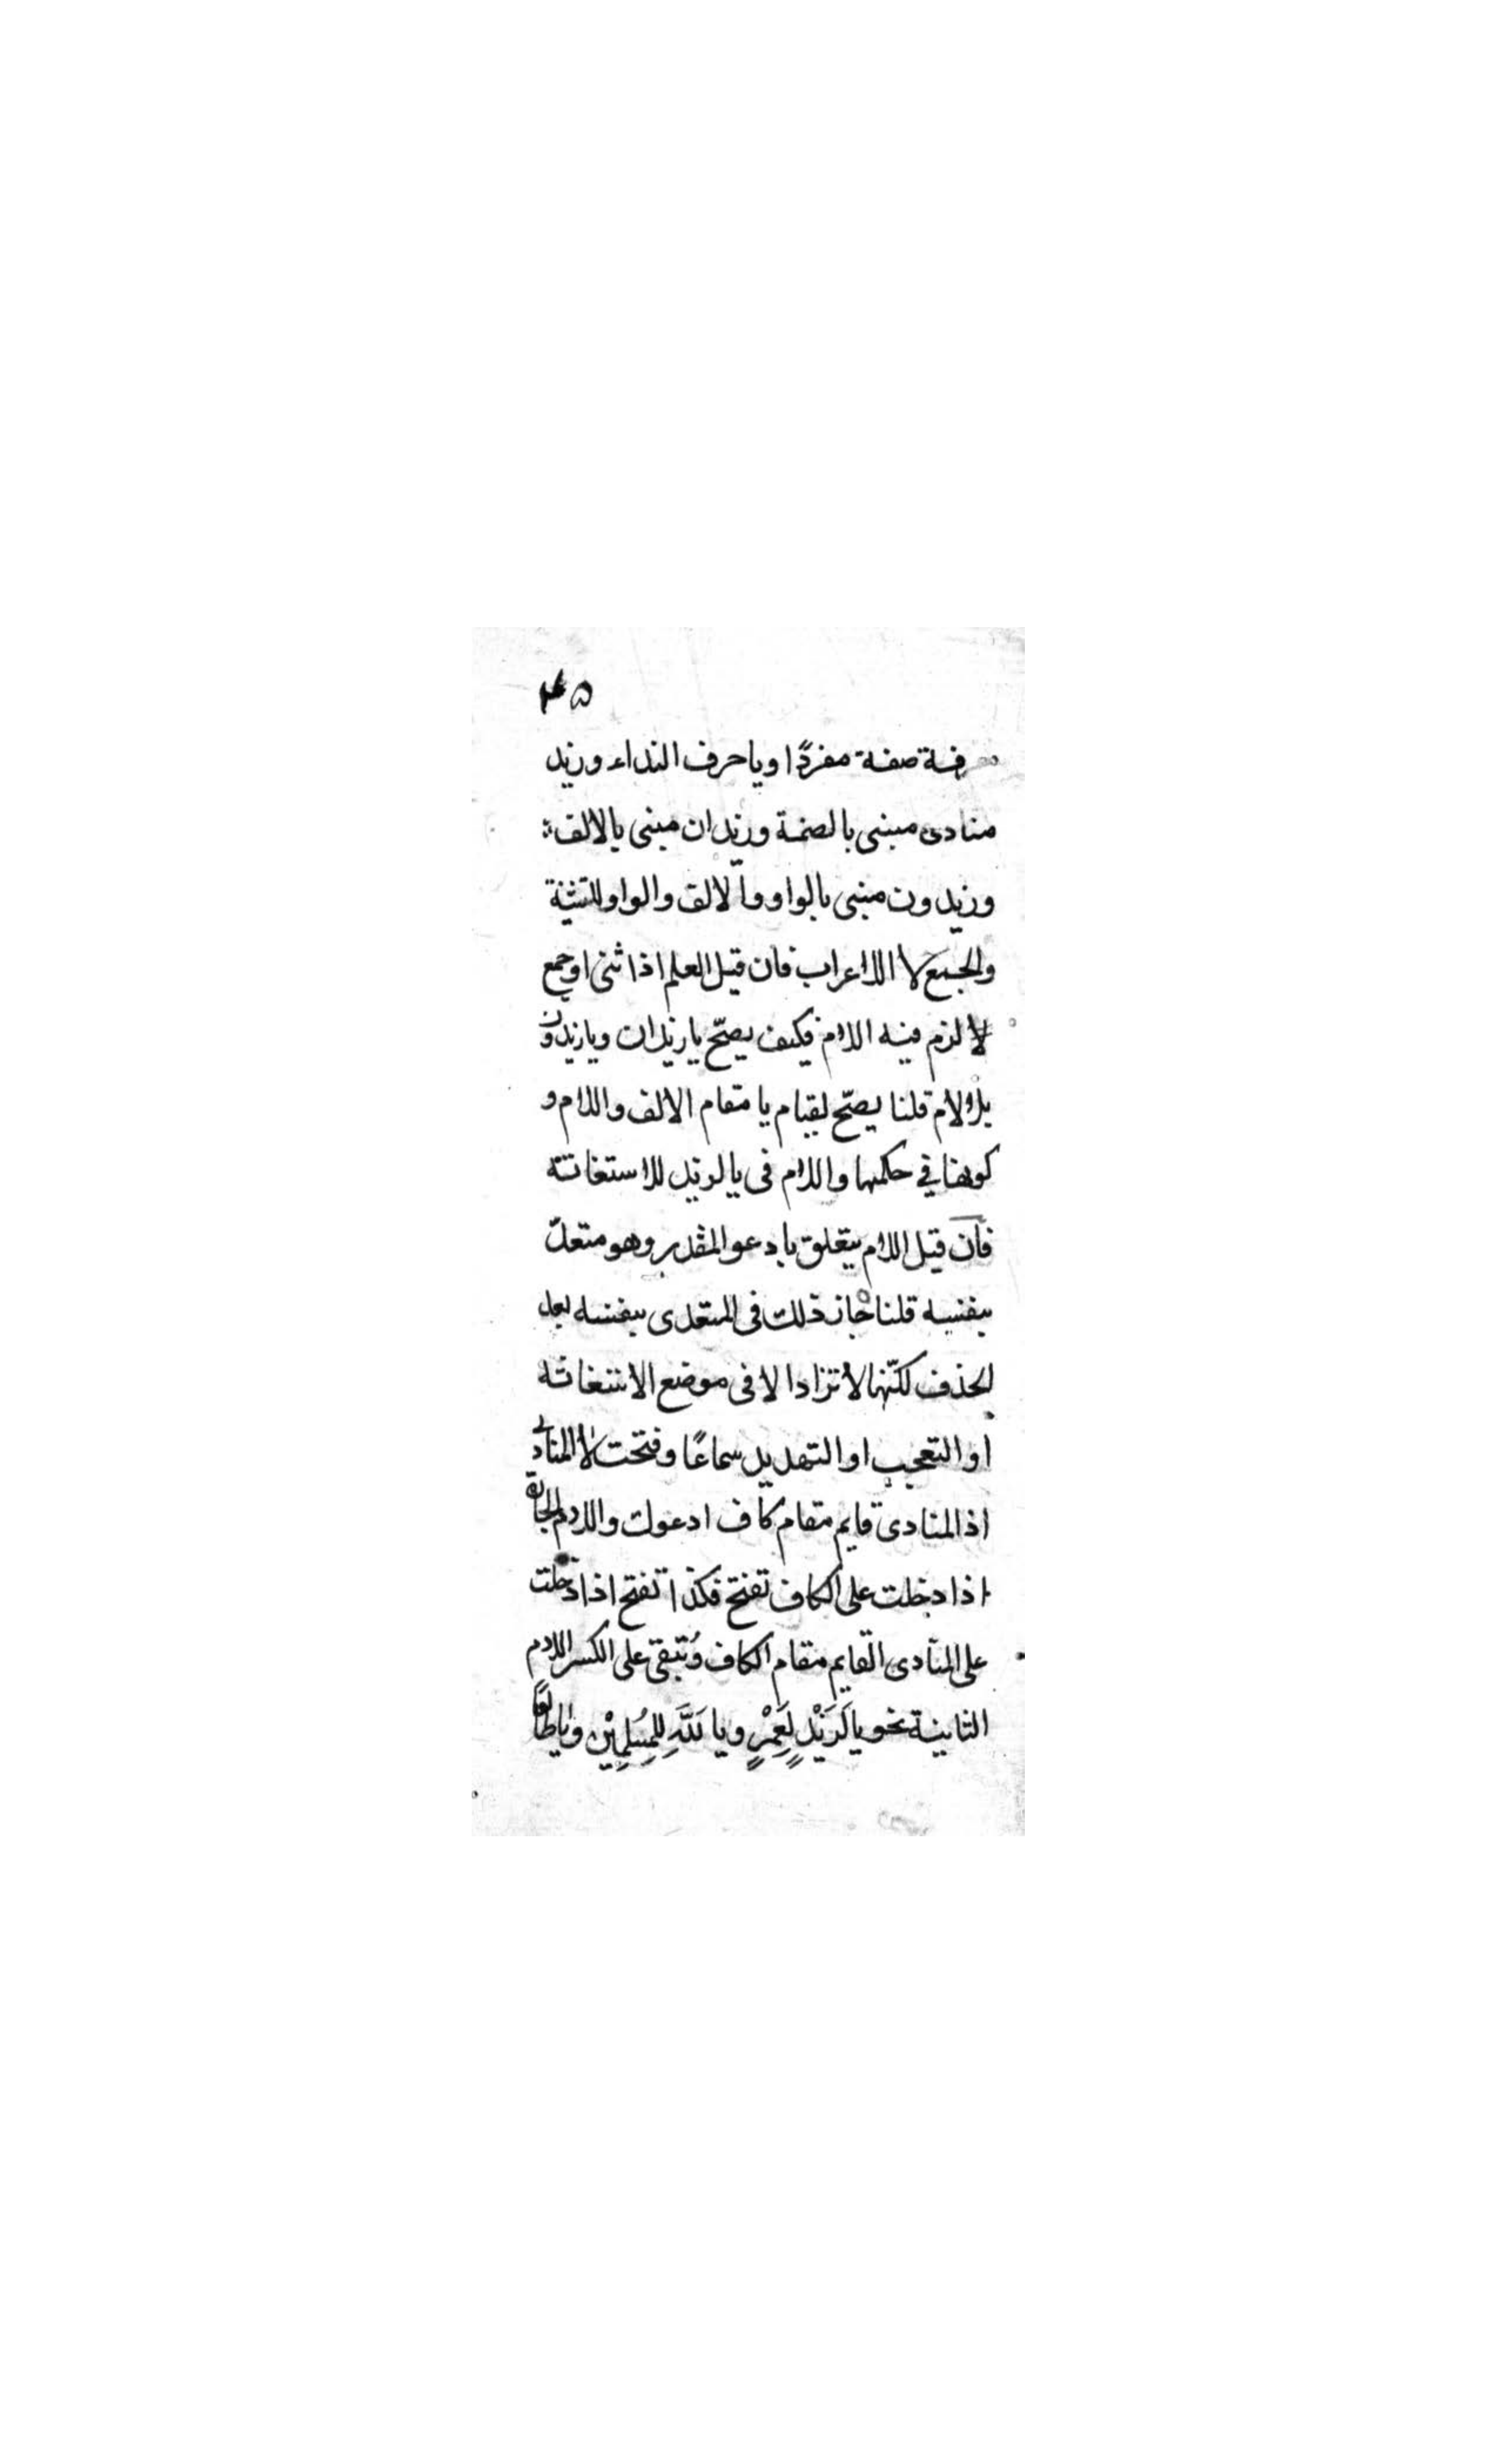 ٤٥
رفة صفة مفردًا ويا حرف النداء وزيد
منادى مبنى بالضمة وزيدان مبنى بالالف
وزيدون مبنى بالواو والالف والواو للتثنية
والجمع لا الاعراب فان قيل العلم اذا ثنى او جمع
لزم فيه اللام فكيف يصحّ يا زيدان ويا زيدون
بلا لام قلنا يصحّ لقيام يا مقام الالف واللام و
كونها في حكمها واللام فى يا لزيد للاستغاثة
فان قيل اللام يتعلق بادعو المقدر وهو متعدّ
بنفسه قلنا جاز ذلك فى المتعدى بنفسه بعد
الحذف لكنّها لا تزاد الا فى موضع الاستغاثه
او التعجب او التهديد سماعًا وفتحت لام المنادى
اذ المنادى قايم مقام كاف ادعوك واللام الجارة
اذا دخلت على الكاف تفتح فكذا تفتح اذا دخلت
على المنادى القايم مقام الكاف وتبقى على الكسر اللام
الثانية نحو يا لَزَيْدٍ لِعَمْرٍ ويا لَلَّهِ لِلْمُسْلِمِيْنَ